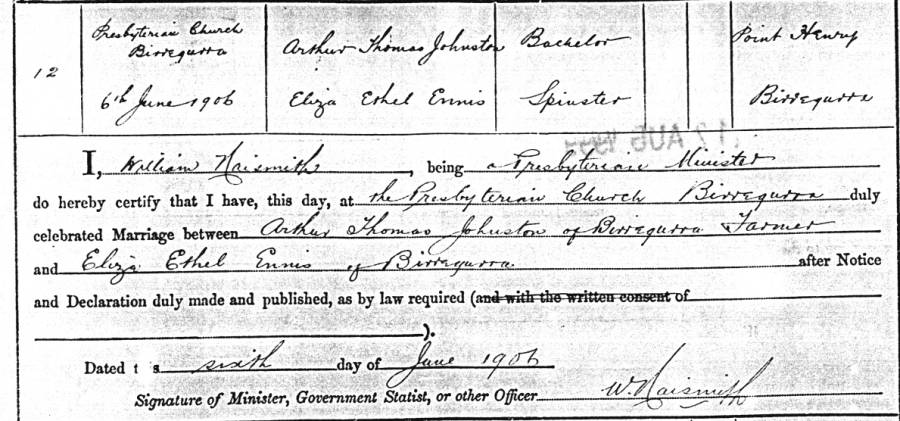 Presbyterian Church Arthur Thomas Johnston Bachelor Point Henry
Birregurra
12
6th June 1906 Eliza Ethel Ennis Spinster Birregurra
17 AUG
I, William Naismith, being a Presbyterian Minister
do hereby certify that I have, this day, at the Presbyterian Church Birregurra duly
celebrated Marriage between Arthur Thomas Johnston of Birregurra Farmer
and Eliza Ethel Ennis of Birregurra after Notice
and Declaration duly made and published, as by law required (and with the written consent of
).
Dated t s sixth day of June 1906
Signature of Minister, Government Statist, or other Officer W. Naismith